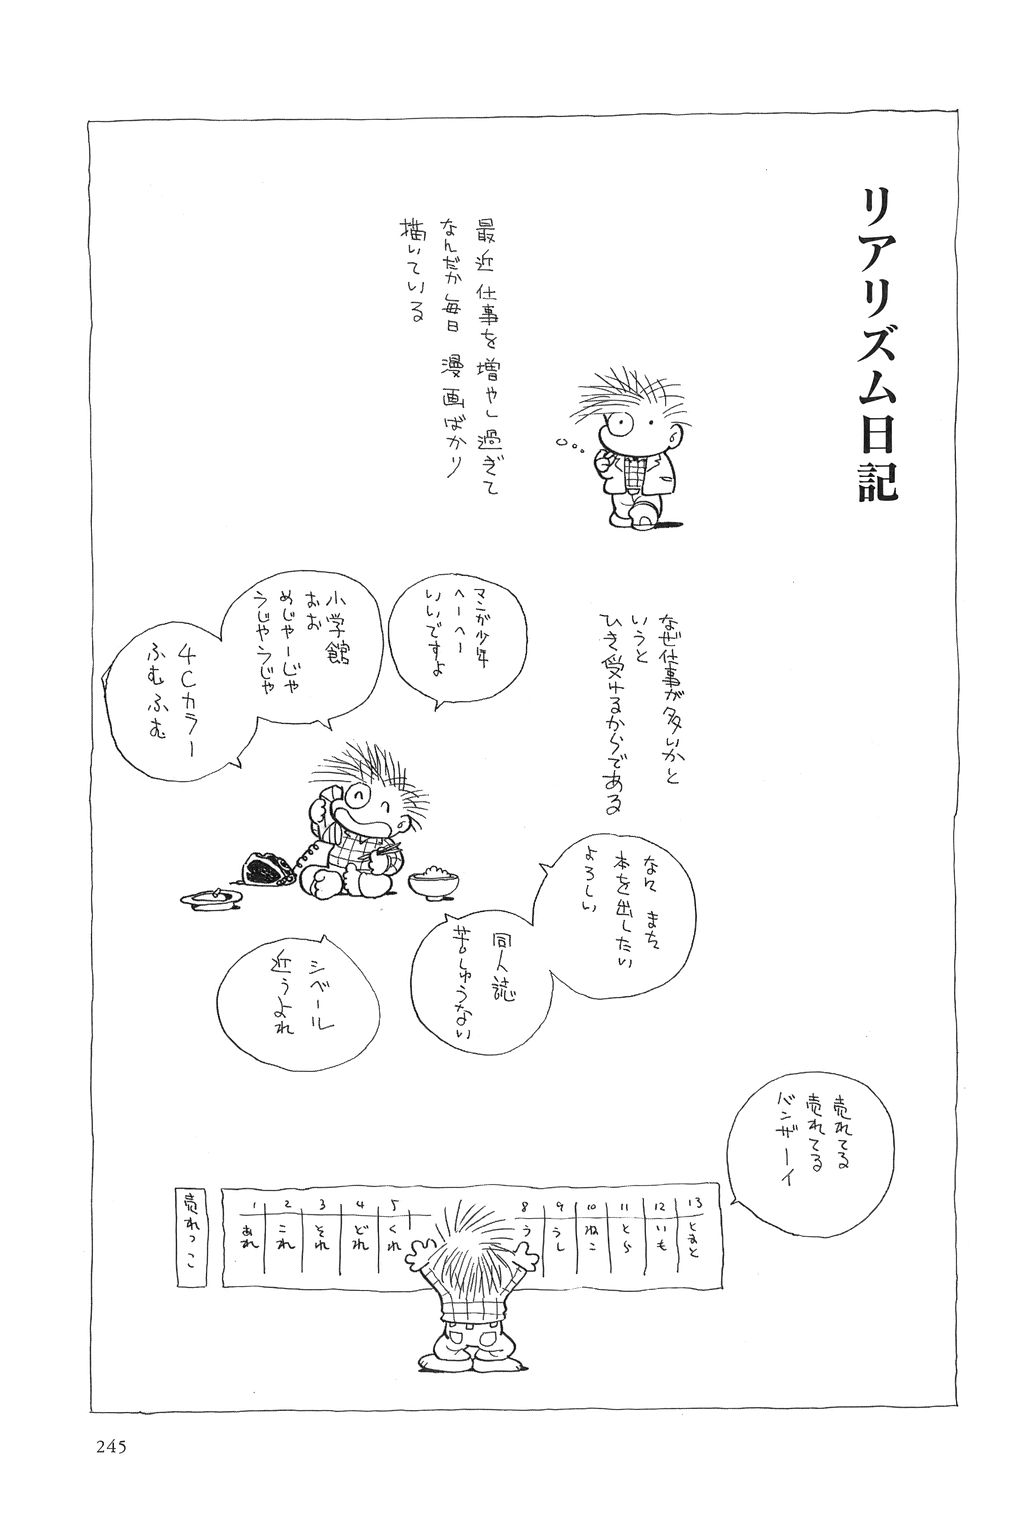 リアリズム日記
最近 仕事を 増やし 過ぎて
なんだか 毎日 漫画ばかり
描いている
なぜ仕事が多いかと
いうと
ひき受けるからである
マンガ少年
ヘーヘー
いいですよ
小学館
おお
めじゃーじゃ
うじゃうじゃ
4Cカラー
ふむふむ
なに まち
本を出したい
よろしい
同人誌
苦しゅうない
シベール
近うよれ
売れてる
売れてる
バンザーイ
売れっこ
1 2 3 4 5 8 9 10 11 12 13
あれ
これ
それ
どれ
くれ
う
うし
ねこ
とら
いも
とまと
245